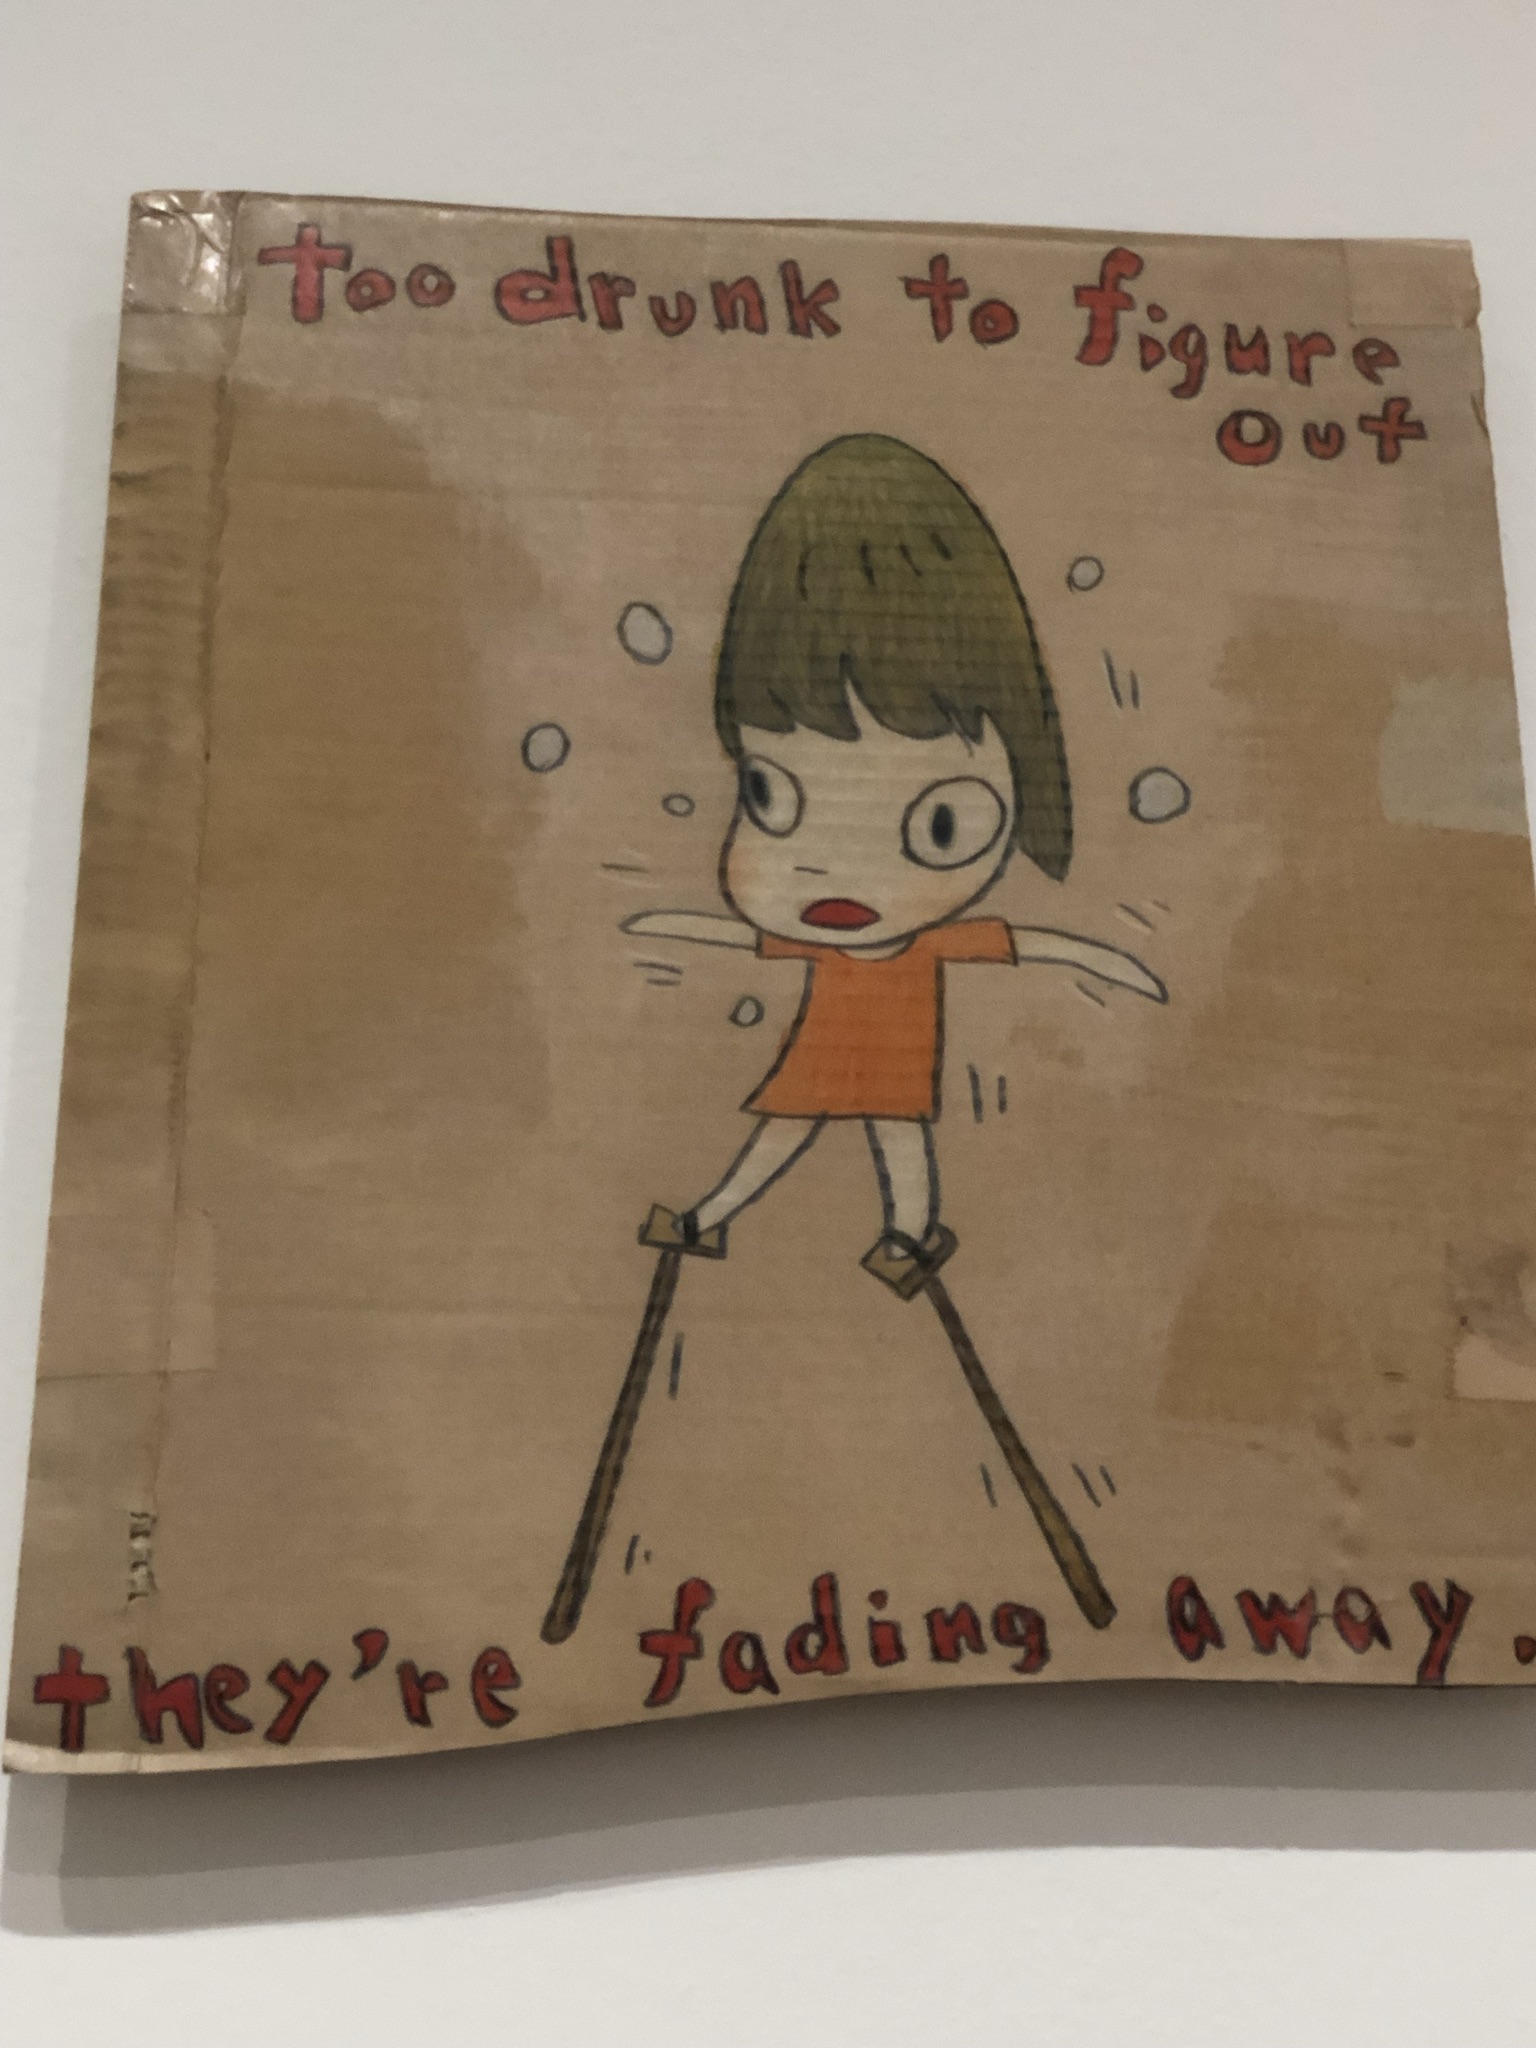 too drunk to figure
out
they're fading away.